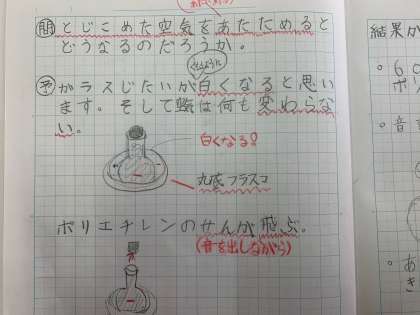 問 とじこめた空気をあたためると
どうなるのだろうか。
予 ガラスじたいが白くなると思い
ます。そして
は何も変わらな
い。
白くなる?
丸底フラスコ
ポリエチレンのせんが飛ぶ。
(音を出しながら)
結果